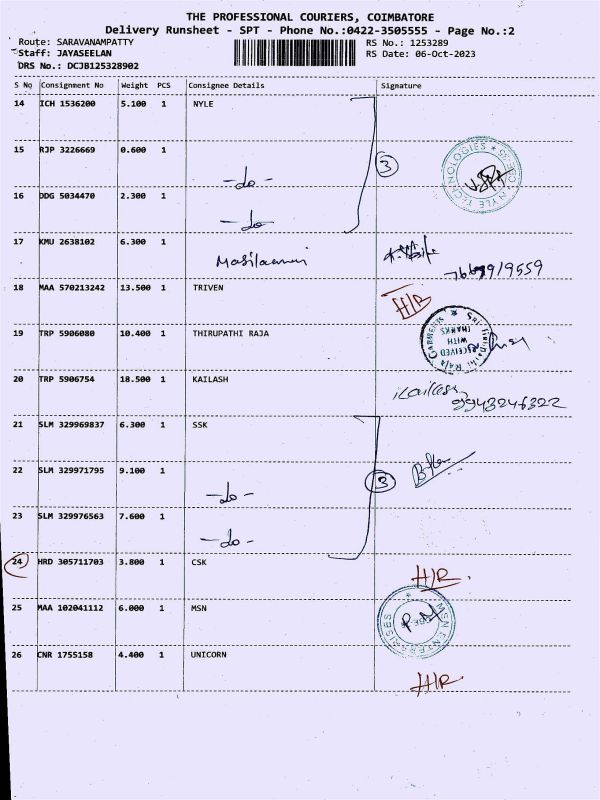 THE PROFESSIONAL COURIERS, COIMBATORE
Delivery Runsheet - SPT - Phone No.:0422-3505555 - Page No.:2
Route: SARAVANAMPATTY RS No.: 1253289
Staff: JAYASEELAN RS Date: 06-Oct-2023
DRS No.: DCJB125328902
S No Consignment No Weight PCS Consignee Details Signature
14 ICH 1536200 5.100 1 NYLE
15 RJP 3226669 0.600 1 -do- 3
16 DDG 5034470 2.300 1 -do-
NYLE TECHNOLOGIES
17 KMU 2638102 6.300 1
18 MAA 570213242 13.500 1 TRIVEN H/R
19 TRP 5906080 10.400 1 THIRUPATHI RAJA
RECEIVED WITH THANKS
20 TRP 5906754 18.500 1 KAILASH
9943246322
21 SLM 329969837 6.300 1 SSK
22 SLM 329971795 9.100 1 -do- 3
23 SLM 329976563 7.600 1 -do-
24 HRD 305711703 3.800 1 CSK H/R
25 MAA 102041112 6.000 1 MSN
MSN ENTERPRISES
26 CNR 1755158 4.400 1 UNICORN H/R